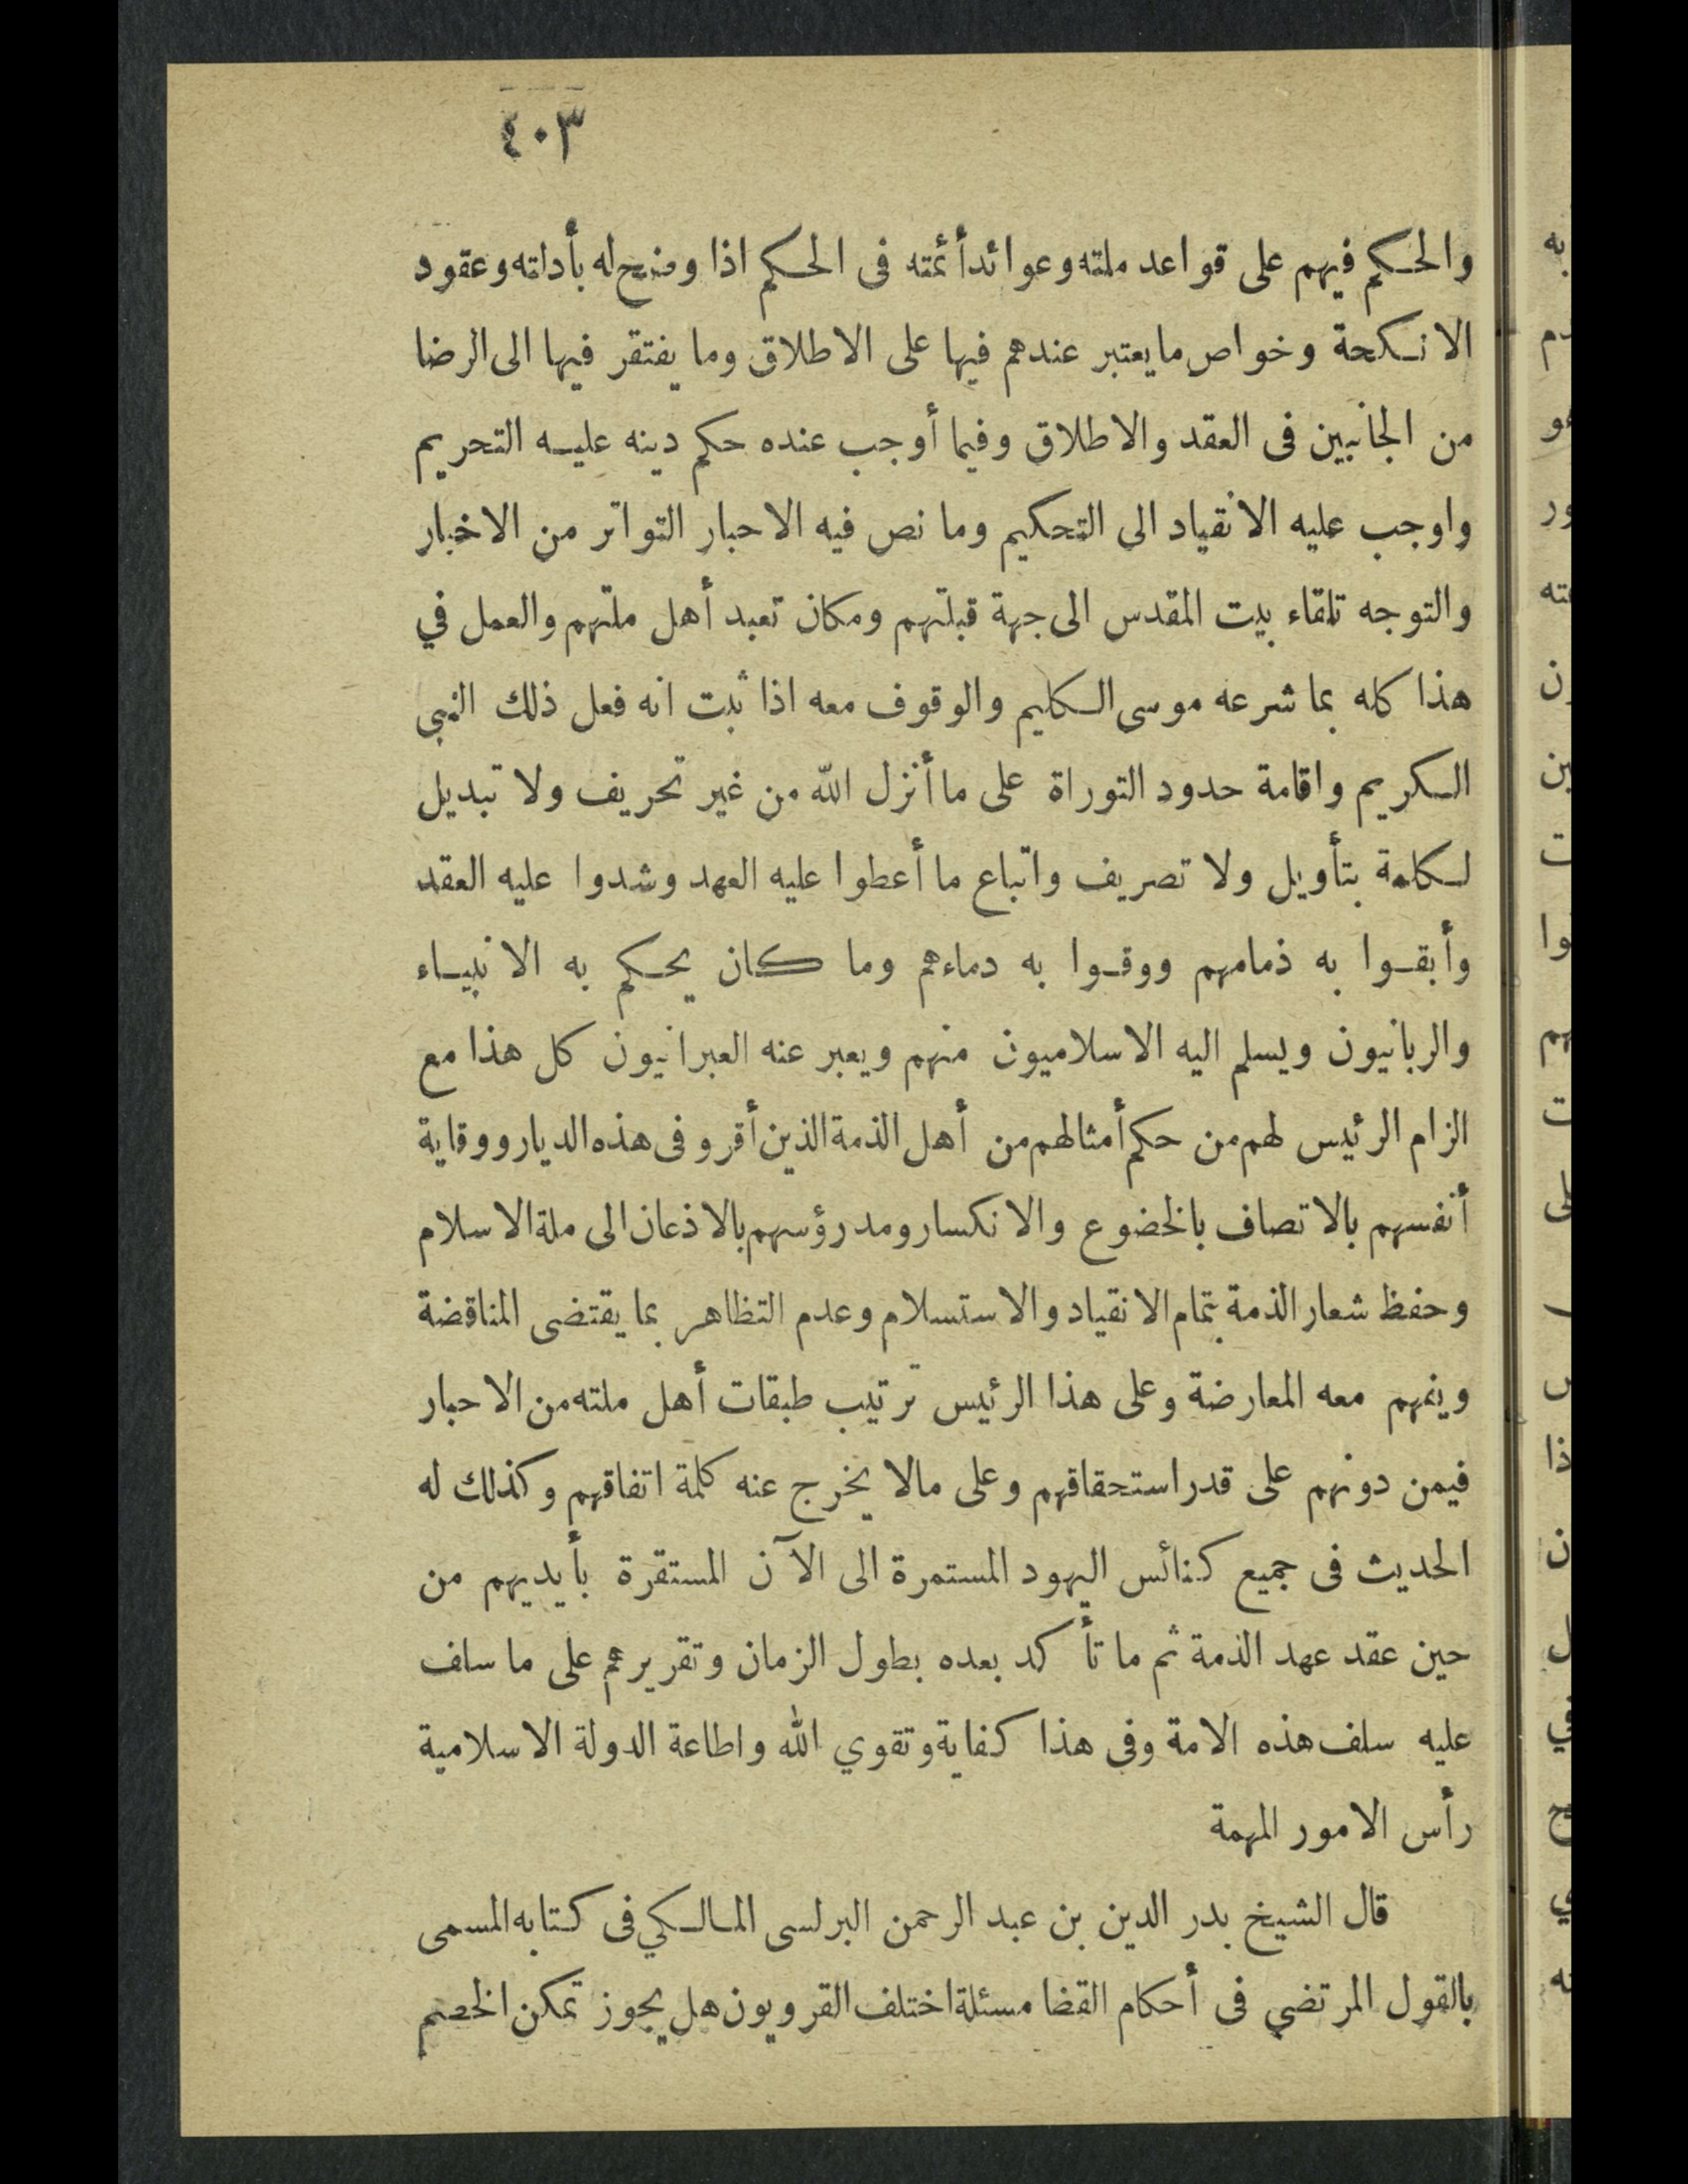 ٤٠٣
والحكم فيهم على قواعد ملته وعوائد أئمته فى الحكم اذا وضح له بأدلته وعقود
الانكحة وخواص ما يعتبر عندهم فيها على الاطلاق وما يفتقر فيها الى الرضا
من الجانبين فى العقد والاطلاق وفيما أوجب عنده حكم دينه عليه التحريم
واوجب عليه الانقياد الى التحكيم وما نص فيه الاحبار التواتر من الاخبار
والتوجه تلقاء بيت المقدس الى جهة قبلتهم ومكان تعبد أهل ملتهم والعمل في
هذا كله بما شرعه موسى الكليم والوقوف معه اذا ثبت انه فعل ذلك النبي
الكريم واقامة حدود التوراة على ما أنزل الله من غير تحريف ولا تبديل
لكلمة بتأويل ولا تصريف واتباع ما أعطوا عليه العهد وشدوا عليه العقد
وأبقوا به ذمامهم ووقوا به دماءهم وما كان يحكم به الانبياء
والربانيون ويسلم اليه الاسلاميون منهم ويعبر عنه العبرانيون كل هذا مع
الزام الرئيس لهم من حكم أمثالهم من أهل الذمة الذين أقرو فى هذه الديار ووقاية
أنفسهم بالاتصاف بالخضوع والانكسار ومد رؤسهم بالاذعان الى ملة الاسلام
وحفظ شعار الذمة بتمام الانقياد والاستسلام وعدم التظاهر بما يقتضى المناقضة
وينهم معه المعارضة وعلى هذا الرئيس ترتيب طبقات أهل ملته من الاحبار
فيمن دونهم على قدر استحقاقهم وعلى مالا يخرج عنه كلمة اتفاقهم وكذلك له
الحديث فى جميع كنائس اليهود المستمرة الى الآن المستقرة بأيديهم من
حين عقد عهد الذمة ثم ما تأكد بعده بطول الزمان وتقريرهم على ما سلف
عليه سلف هذه الامة وفى هذا كفاية وتقوي الله واطاعة الدولة الاسلامية
رأس الامور المهمة
قال الشيخ بدر الدين بن عبد الرحمن البرلسى المالكي فى كتابه المسمى
بالقول المرتضي فى أحكام القضا مسئلة اختلف القرويون هل يجوز تمكن الخصم